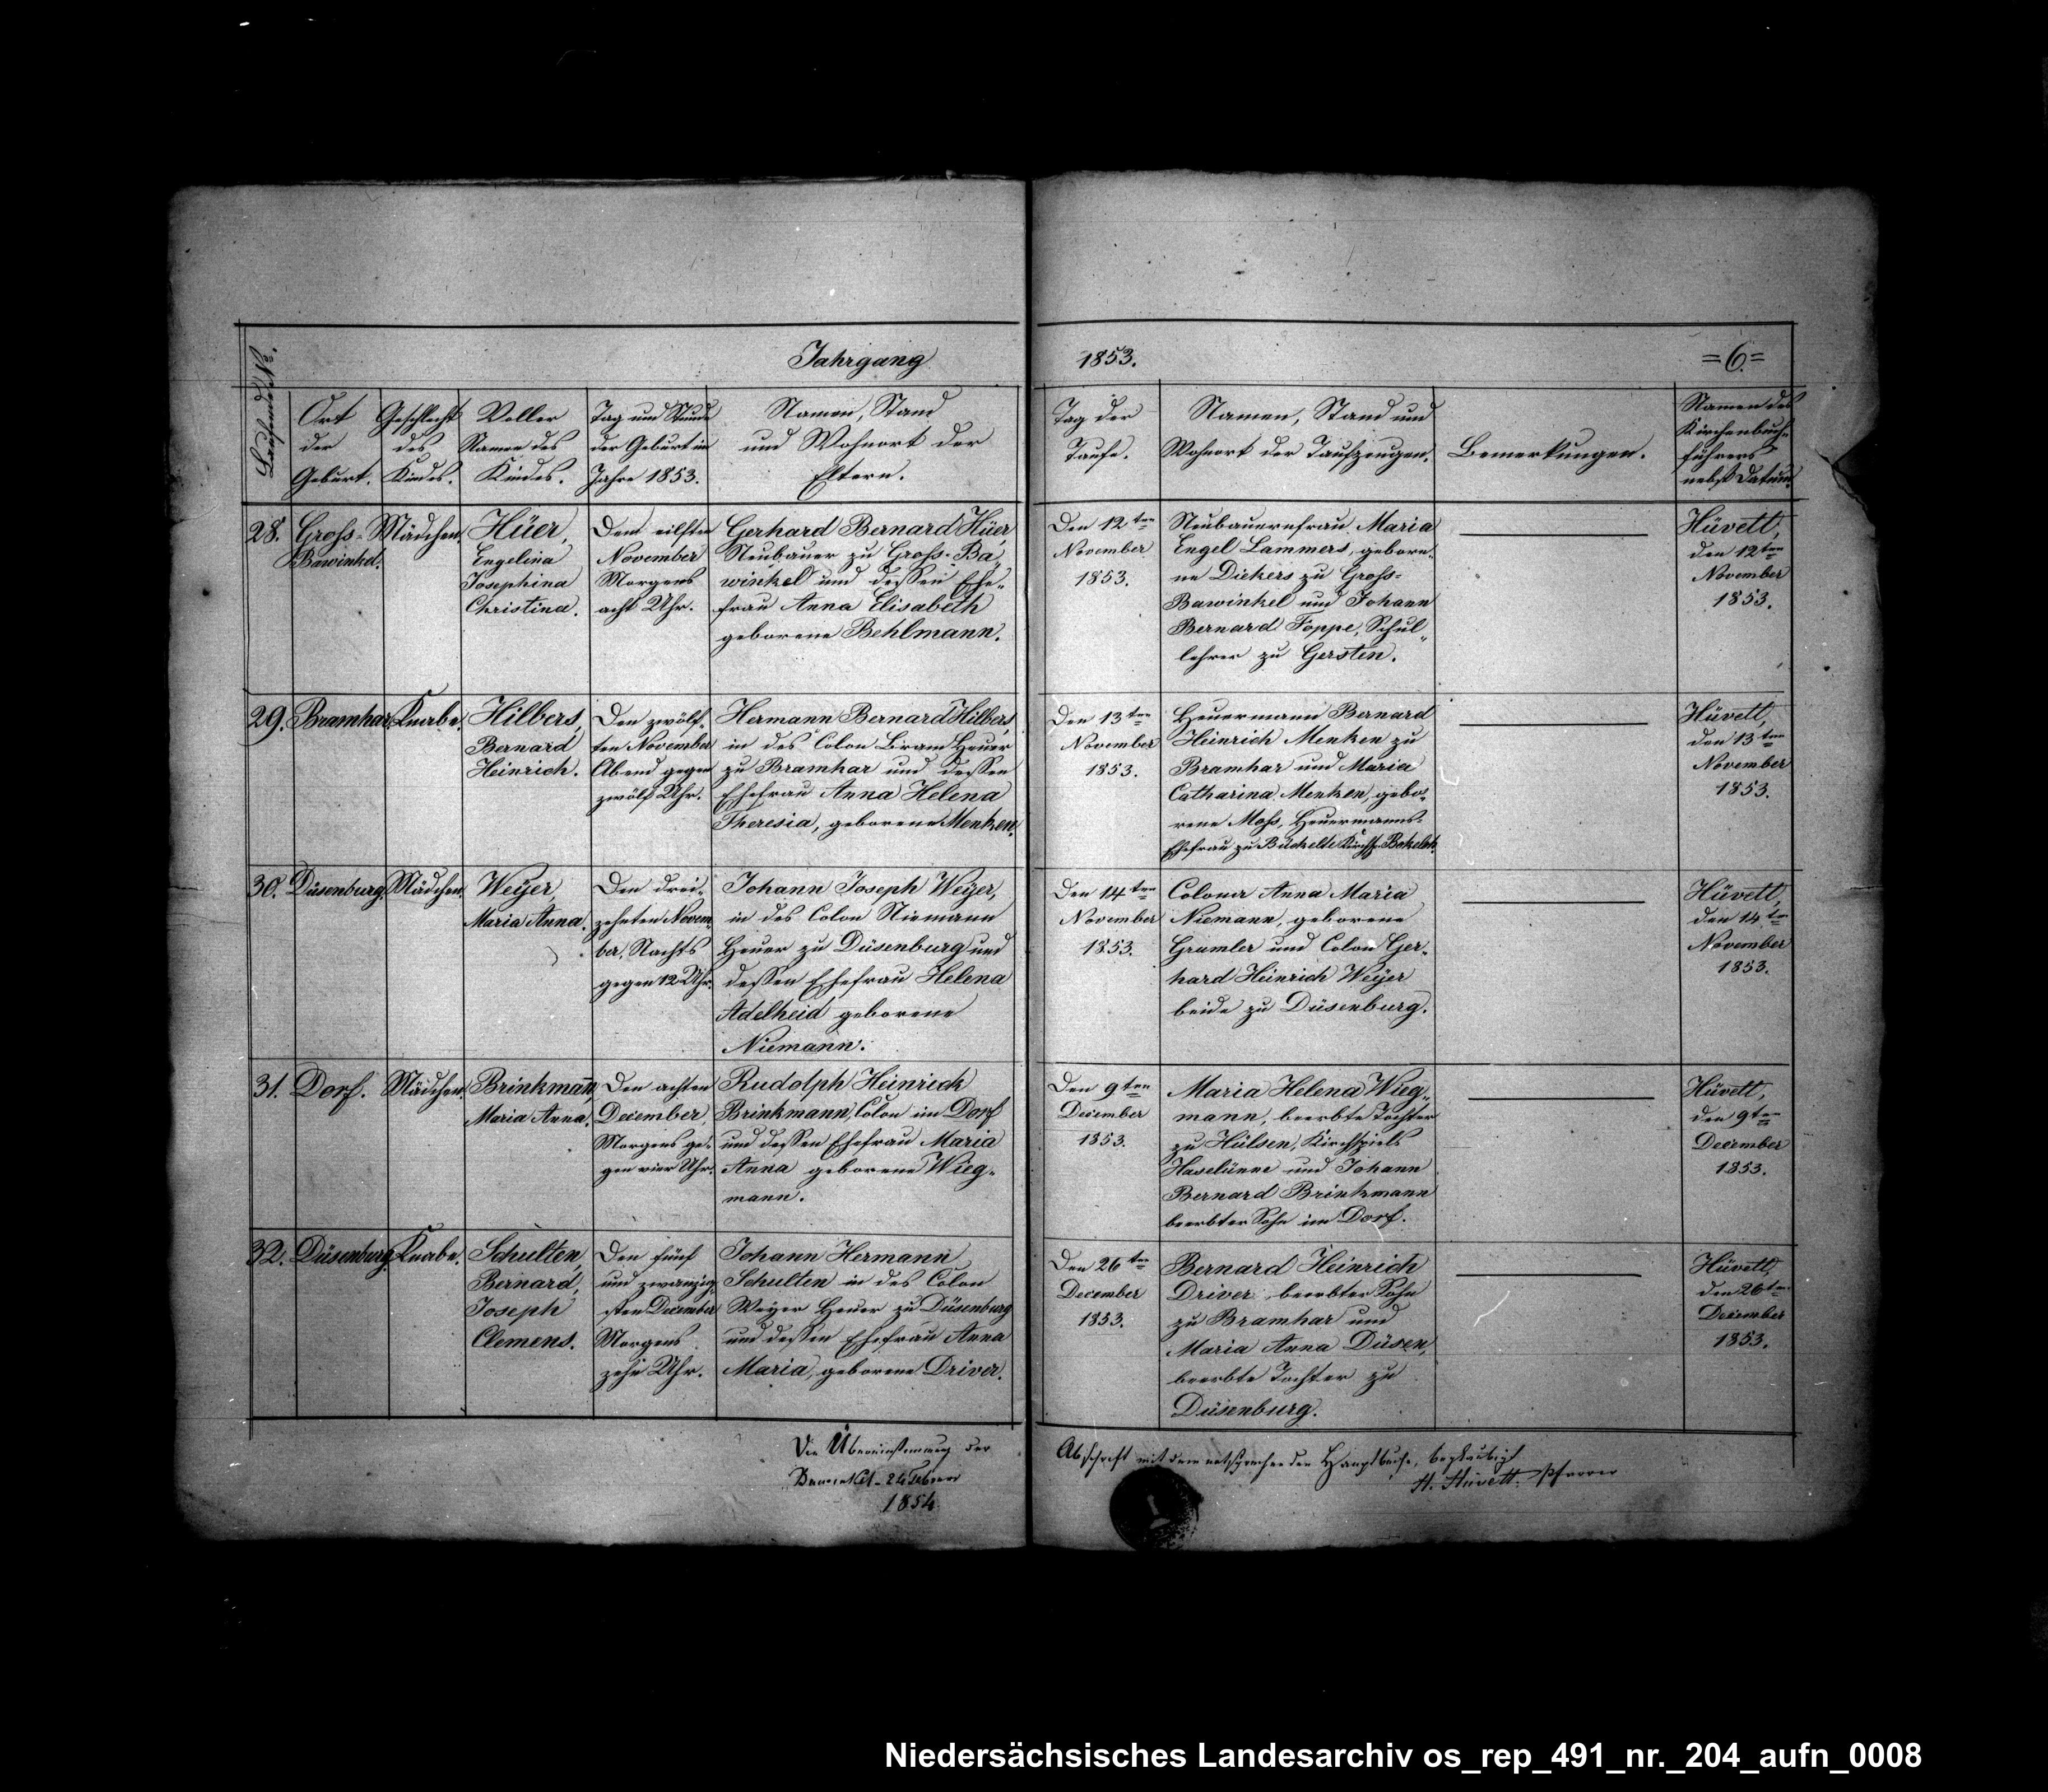 Jahrgang 1853. =6=
Laufende No.
Ort
der
Geburt.
Geschlecht
des
Kindes.
Voller
Namen des
Kindes.
Tag und Stunde
der Geburt im
Jahre 1853.
Namen, Stand
und Wohnort der
Eltern.
Tag der
Taufe.
Namen, Stand und
Wohnort der Taufzeugen.
Bemerkungen.
Namen des
Kirchenbuch-
führers
nebst Datum.
28.
Groß-
Bawinkel.
Mädchen.
Hüer,
Engelina
Josephina
Christina.
Den eilften
November
Morgens
acht Uhr.
Gerhard Bernard Hüer
Neubauer zu Groß-Ba-
winkel und dessen Ehe-
frau Anna Elisabeth
geborene Behlmann.
Den 12ten
November
1853.
Neubauernfrau Maria
Engel Lammers, gebore-
ne Diekers zu Groß-
Bawinkel und Johann
Bernard Foppe, Schul-
lehrer zu Gersten.
Hüvett,
den 12ten
November
1853.
29.
Bramhar.
Knabe.
Hilbers,
Bernard
Heinrich.
Den zwölf-
ten November
Abend gegen
zwölf Uhr.
Hermann Bernard Hilbers,
in des Colon Bram Heuer
zu Bramhar und dessen
Ehefrau Anna Helena
Theresia, geborene Menken.
Den 13ten
November
1853.
Heuermann Bernard
Heinrich Menken zu
Bramhar und Maria
Catharina Menken, gebo-
rene Moß, Heuermanns-
Ehefrau zu Bückelte Kirchsp. Bokeloh.
Hüvett,
den 13ten
November
1853.
30.
Düsenburg.
Mädchen.
Weÿer,
Maria Anna.
Den drei-
zehnten Novem-
ber, Nachts
gegen 12 Uhr.
Johann Joseph Weÿer,
in des Colon Niemann
Heuer zu Düsenburg und
dessen Ehefrau Helena
Adelheid geborene
Niemann.
Den 14ten
November
1853.
Colona Anna Maria
Niemann, geborene
Gramler und Colon Ger-
hard Heinrich Weÿer
beide zu Düsenburg.
Hüvett,
den 14ten
November
1853.
31.
Dorf.
Mädchen.
Brinkmann,
Maria Anna.
Den achten
December,
Morgens ge-
gen vier Uhr.
Rudolph Heinrich
Brinkmann Colon im Dorf
und dessen Ehefrau Maria
Anna geborene Wieg-
mann.
Den 9ten
December
1853.
Maria Helena Wieg-
mann, beerbte Tochter
zu Hülsen, Kirchspiels
Haselünne und Johann
Bernard Brinkmann
beerbter Sohn im Dorf.
Hüvett,
den 9ten
December
1853.
32.
Düsenburg.
Knabe.
Schulten,
Bernard,
Joseph
Clemens.
Den fünf
und zwanzig-
sten December
Morgens
zehn Uhr.
Johann Hermann
Schulten in des Colon
Weyer Heuer zu Düsenburg
und dessen Ehefrau Anna
Maria, geborene Driver.
Den 26ten
December
1853.
Bernard Heinrich
Driver, beerbter Sohn
zu Bramhar und
Maria Anna Düsen,
beerbte Tochter zu
Düsenburg.
Hüvett,
den 26ten
December
1853.
Die Übereinstimmung der Abschrift mit dem entsprechenden Hauptbuche, beglaubigt
Bawinkel 24 1854
H. Hüvett. Pfarrer
Niedersächsisches Landesarchiv os_rep_491_nr._204_aufn_0008